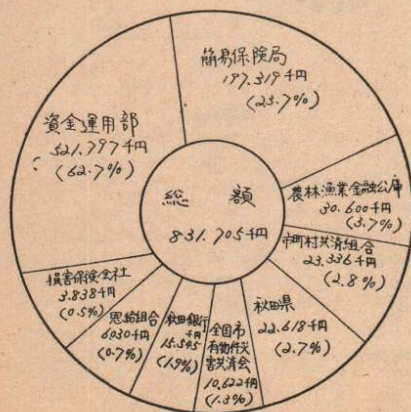 簡易保険局
197.319千円
(23.7%)
農林漁業金融公庫
30.600千円
(3.7%)
市町村共済組合
23.336千円
(2.8%)
秋田県
22.618千円
(2.7%)
全国市
有物件災
害共済会
10.622千円
(1.3%)
秋田銀行
千円
15.545
(1.9%)
恩給組合
6030千円
(0.7%)
損害保険会社
3.838千円
(0.5%)
資金運用部
521.797千円
(62.7%)
総額
831.705千円